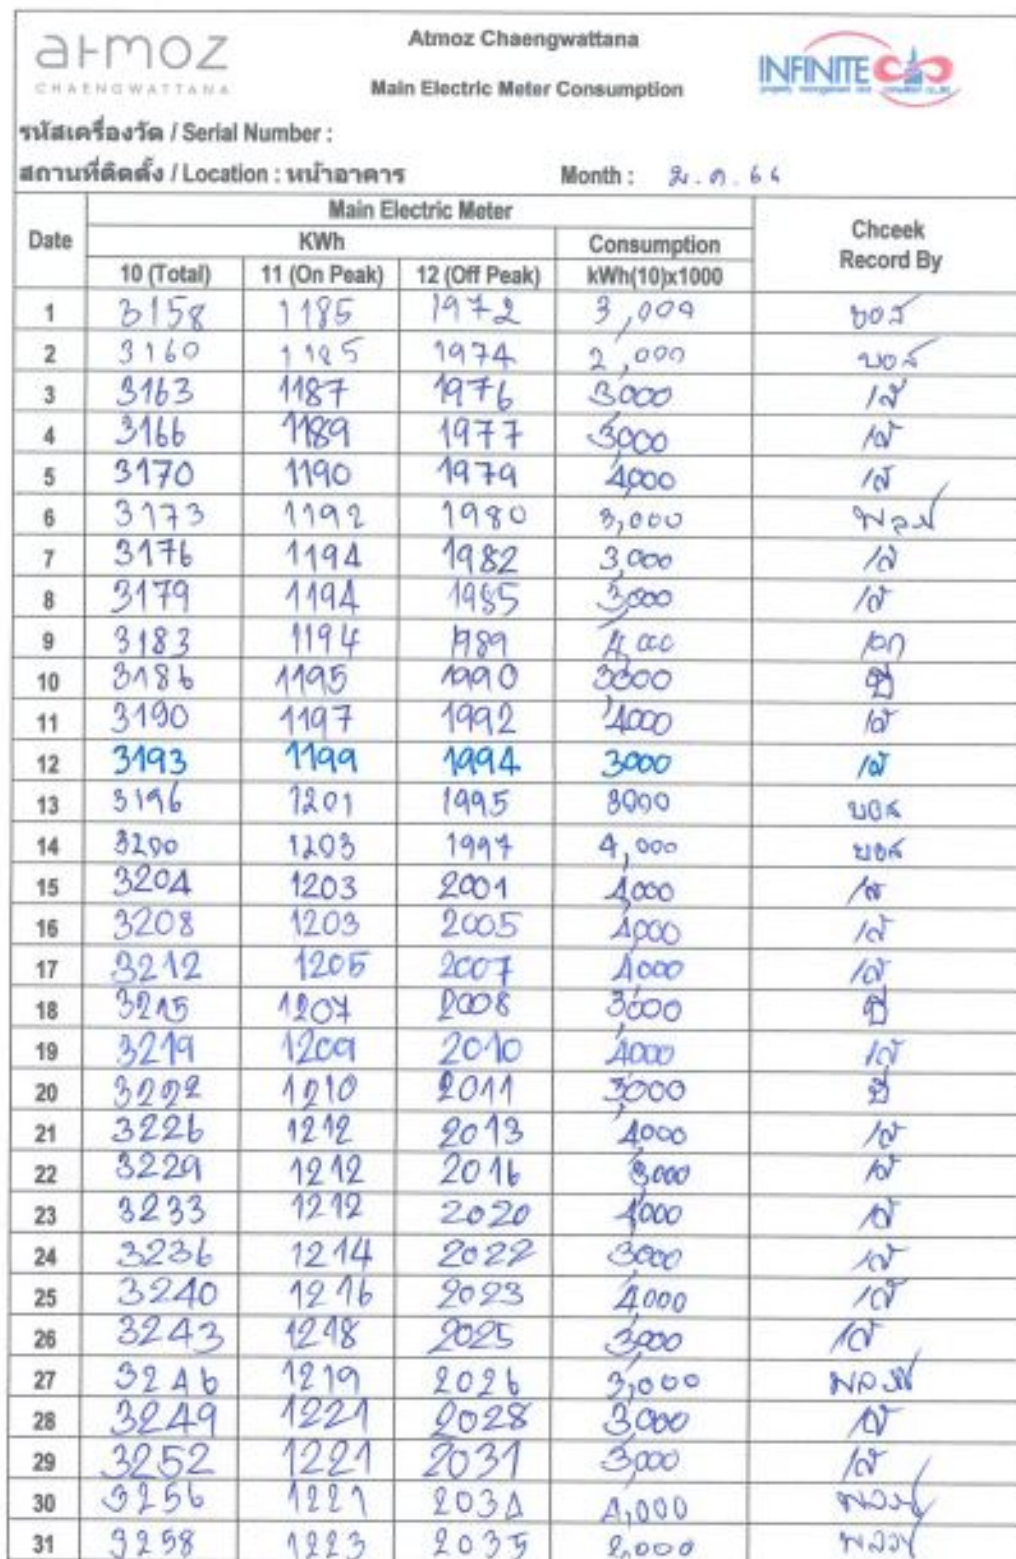 atmoz
CHAENGWATTANA
Atmoz Chaengwattana
Main Electric Meter Consumption
INFINITE
รหัสเครื่องวัด / Serial Number :
สถานที่ติดตั้ง / Location : หน้าอาคาร Month : มี.ค. 64
Date Main Electric Meter Chceek Record By
KWh Consumption
10 (Total) 11 (On Peak) 12 (Off Peak) kWh(10)x1000
1 3158 1185 1972 3,000 บอส
2 3160 1185 1974 2,000 บอส
3 3163 1187 1976 3,000
4 3166 1189 1977 3,000
5 3170 1190 1979 4,000
6 3173 1192 1980 3,000
7 3176 1194 1982 3,000
8 3179 1194 1985 3,000
9 3183 1194 1989 4,000 เอก
10 3186 1195 1990 3,000
11 3190 1197 1992 4,000
12 3193 1199 1994 3000
13 3196 1201 1995 3000 บอส
14 3200 1203 1997 4,000 บอส
15 3204 1203 2001 4,000
16 3208 1203 2005 4,000
17 3212 1205 2007 4,000
18 3215 1207 2008 3,000
19 3219 1209 2010 4,000
20 3222 1210 2011 3,000
21 3226 1212 2013 4,000
22 3229 1212 2016 3,000
23 3233 1212 2020 4,000
24 3236 1214 2022 3,000
25 3240 1216 2023 4,000
26 3243 1218 2025 3,000
27 3246 1219 2026 3,000
28 3249 1221 2028 3,000
29 3252 1221 2031 3,000
30 3256 1221 2034 4,000
31 3258 1223 2035 2,000